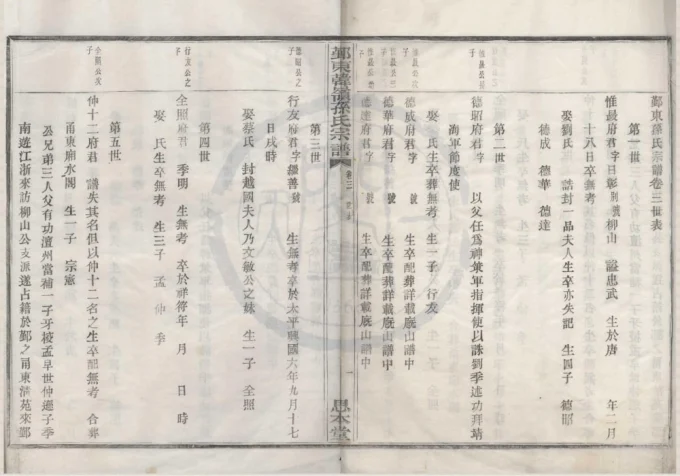 鄞東孫氏宗譜卷三世表
第一世
惟最府君字曰彰則號柳山 謚忠武 生於唐 年二月
十八日卒無考
娶劉氏 誥封一品夫人生卒亦失記 生四子 德昭
德成 德華 德達
第二世
惟最公長子
德昭府君字 以父任爲神策軍指揮使以誅劉季述功拜靖
海軍節度使
娶 氏生卒葬無考 生一子 行友
惟最公次子
德威府君字 號 生卒配葬詳載庶山譜中
惟最公三子
德華府君字 號 生卒配葬詳載庶山譜中
惟最公四子
德達府君字 號 生卒配葬詳載庶山譜中
鄞東韓嶺孫氏宗譜
卷三
一
思本堂
第三世
德昭公之子
行友府君字繼善號 生無考卒於太平興國六年九月十七
日戌時
娶蔡氏 封越國夫人乃文敏公之妹 生一子 全照
第四世
行友公之子
全照府君 季明 生無考 卒於祥符年 月 日 時
娶 氏生卒無考 生三子 孟 仲 季
第五世
全照公次子
仲十二府君 譜失其名但以仲十二名之生卒配無考 合葬
甬東廟水閣 生一子 宗憲
公兄弟三人父有功澶州當補一子牙校孟早世仲遜子季
南遊江浙來訪柳山公支派遂占籍於鄞之甬東清苑來鄞